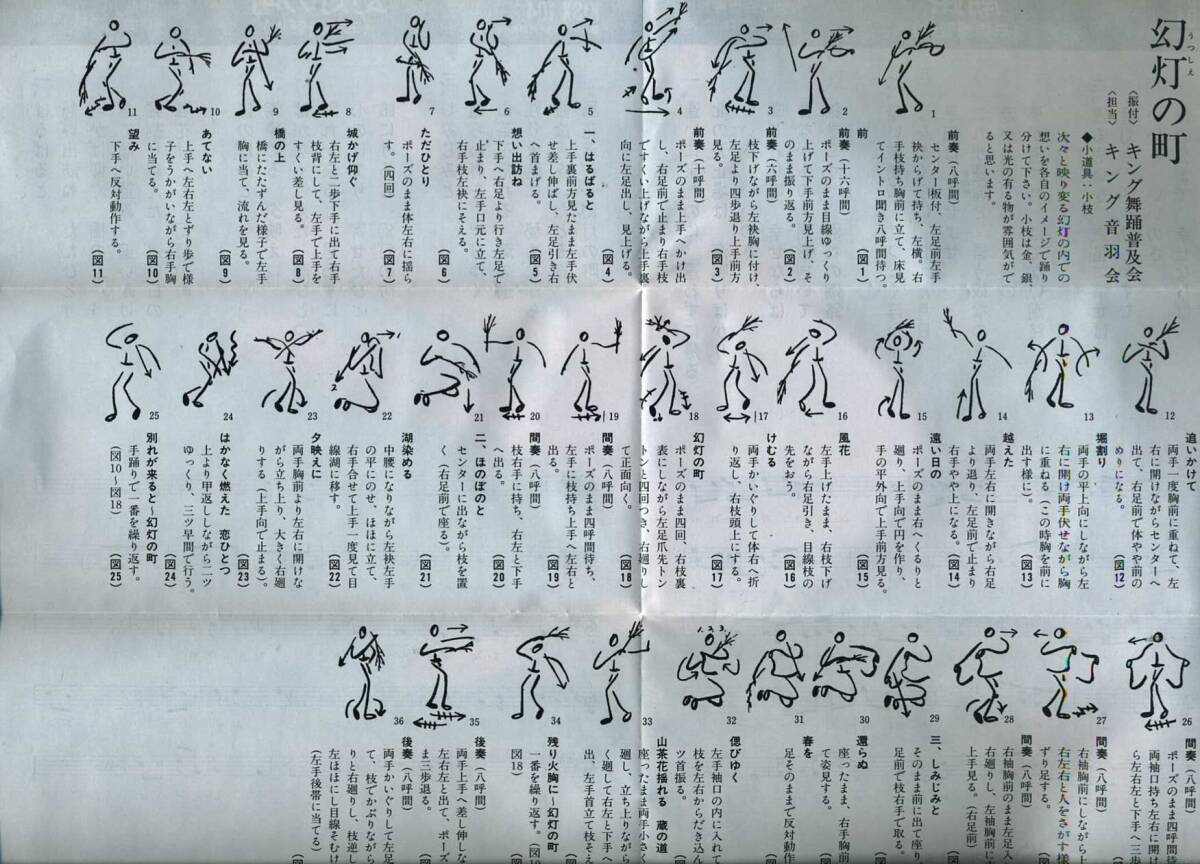 幻灯の町
うつしえ
〈振付〉キング舞踊普及会
〈担当〉キング音羽会
◆小道具…小枝
次々と映り変る幻灯の内での
想いを各自のイメージで踊り
分けて下さい。小枝は金、銀、
又は光の有る物が雰囲気がで
ると思います。
1
前奏（八呼間）
センター板付、左足前左手
袂からげて持ち、左横。右
手枝持ち胸前に立て、床見
てイントロ聞き八呼間待つ。
（図1）
2
前奏（十六呼間）
ポーズのまま目線ゆっくり
上げて下手前方見上げ、そ
のまま振り返る。
（図2）
3
前奏（六呼間）
枝下げながら左袂胸に付け、
左足より四歩退り上手前方
見る。
（図3）
4
前奏（十呼間）
ポーズのまま上手へかけ出
し、右足前で止まり右手枝
ですくい上げながら上手裏
向に左足出し、見上げる。
（図4）
5
一、はるばると
上手裏前方見たまま左手伏
せ差し伸ばし、左足引き右
へ首まげる。
（図5）
6
想い出訪ね
下手へ右足より行き左足で
止まり、左手口元に立て、
右手枝左袂にそえる。
（図6）
7
ただひとり
ポーズのまま体左右に揺ら
す。（四回）
（図7）
8
城かげ仰ぐ
右左と二歩下手に出て右手
枝背にして、左手で上手を
すくい差し見る。
（図8）
9
橋の上
橋にたたずんだ様子で左手
胸に当て、流れを見る。
（図9）
10
あてない
上手へ左右左とずり歩で様
子をうかがいながら右手胸
に当てる。
（図10）
11
望み
下手へ反対動作する。
（図11）
12
追いかけて
両手一度胸前に重ねて、左
右に開けながらセンターへ
出て、右足前で体やや前の
めりになる。
（図12）
13
堀割り
両手の平上向にしながら左
右に開け両手伏せながら胸
に重ねる（この時胸を前に
出す様に）。
（図13）
14
越えた
両手左右に開きながら右足
より退り、左足前で止まり
右手やや上になる。
（図14）
15
遠い日の
ポーズのまま右へくるりと
廻り、上手向で円を作り、
手の平外向で上手前方見る。
（図15）
16
風花
左手上げたまま、右枝下げ
ながら右足引き、目線枝の
先をおう。
（図16）
17
けむる
両手かいぐりして体右へ折
り返し、右枝頭上にする。
（図17）
18
幻灯の町
ポーズのまま四回、右枝裏
表にしながら左足爪先トン
トンと四回つき、右廻りし
て正面向く。
（図18）
19
間奏（八呼間）
ポーズのまま四呼間待ち、
左手に枝持ち上手へ右左と
出る。
（図19）
20
間奏（八呼間）
枝右手に持ち、右左と下手
へ出る。
（図20）
21
二、ほのぼのと
センターに出ながら枝を置
く（右足前で座る）。
（図21）
22
湖染める
中腰になりながら左袂左手
の平にのせ、ほほに立て、
右手合せて上手一度見て目
線湖に移す。
（図22）
23
夕映えに
両手胸前より左右に開けな
がら立ち上り、大きく右廻
りする（上手向で止まる）。
（図23）
24
はかなく燃えた　恋ひとつ
上より甲返ししながら二ツ
ゆっくり、三ツ早間で行う。
（図24）
25
別れが来ると～幻灯の町
手踊りで一番を繰り返す。
（図10～図18）
（図25）
26
間奏（八呼間）
ポーズのまま四呼間待
両袖口持ち左右に開
ら左右左と下手へ三
27
間奏（八呼間）
右袖胸前にしながら上
右左右と人をさがす様
ずり足する。
28
間奏（八呼間）
右袖胸前のまま左足入
右廻りし、左袖胸前に
上手見る。（右足前）
29
三、しみじみと
そのまま前に出て座り、
足前で枝右手で取る。
30
還らぬ
座ったまま、右手胸前
て姿見する。
31
春を
足そのままで反対動作
32
偲びゆく
左手袖口の内に入れて
枝を左右からだき込ん
ツ首振る。
33
山茶花揺れる　蔵の道
座ったまま両手小さく
廻し、立ち上りながら
く廻して右左と下手へ
出、左手首立て枝そえ
34
残り火胸に～幻灯の町
一番を繰り返す。（図10
図18）
35
後奏（八呼間）
両手上手へ差し伸ばし
左右左と出て、ポーズ
ま三歩退る。
36
後奏（八呼間）
両手かいぐりして左足
て、枝でかぶりながら
りと右廻りし、枝逆し
左ほほにし目線そむけ
（左手後帯に当てる）